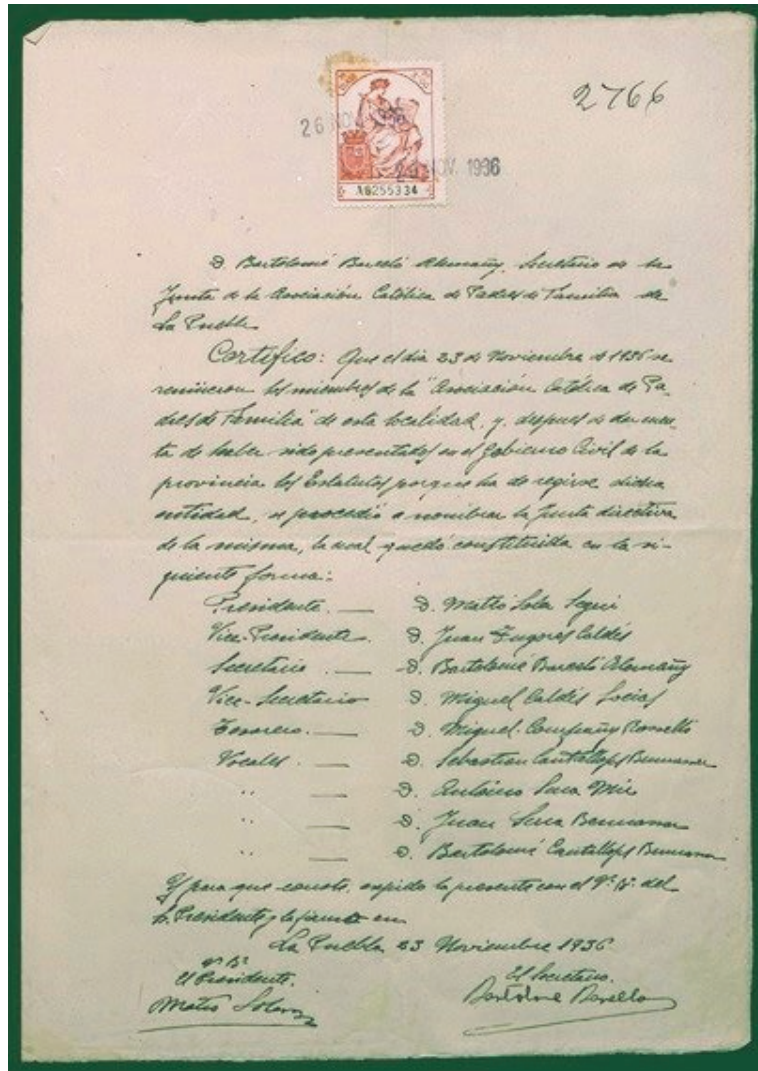 2766
26 NOV. 1936
26 NOV. 1936
A8255334
D. Bartolomé Barceló Alemañy, Secretario de la
Junta de la Asociación Católica de Padres de Familia de
La Puebla
Certifico: Que el dia 23 de Noviembre de 1936 se
reunieron los miembros de la "Asociación Católica de Pa-
dres de Familia" de esta localidad, y, despues de dar cuen-
ta de haber sido presentados en el Gobierno Civil de la
provincia los Estatutos porque ha de regirse dicha
entidad, se procedió a nombrar la Junta directiva
de la misma, la cual quedó constituida en la si-
guiente forma:
Presidente. — D. Mateo Soler Segui
Vice-Presidente. D. Juan Fugores Caldés
Secretario. — D. Bartolomé Barceló Alemañy
Vice-Secretario D. Miguel Caldés Socias
Tesorero. — D. Miguel Company Rosselló
Vocales. — D. Sebastian Cantallops Bennasar
" — D. Antonio Serra Mir
" — D. Juan Serra Bennasar
" — D. Bartolomé Cantallops Bennasar
Y para que conste, expido la presente con el Vº Bº del
Sr. Presidente y la firmo en
La Puebla 23 Noviembre 1936
Vº Bº
El Presidente.
El Secretario.
Mateo Soler
Bartolomé Barceló